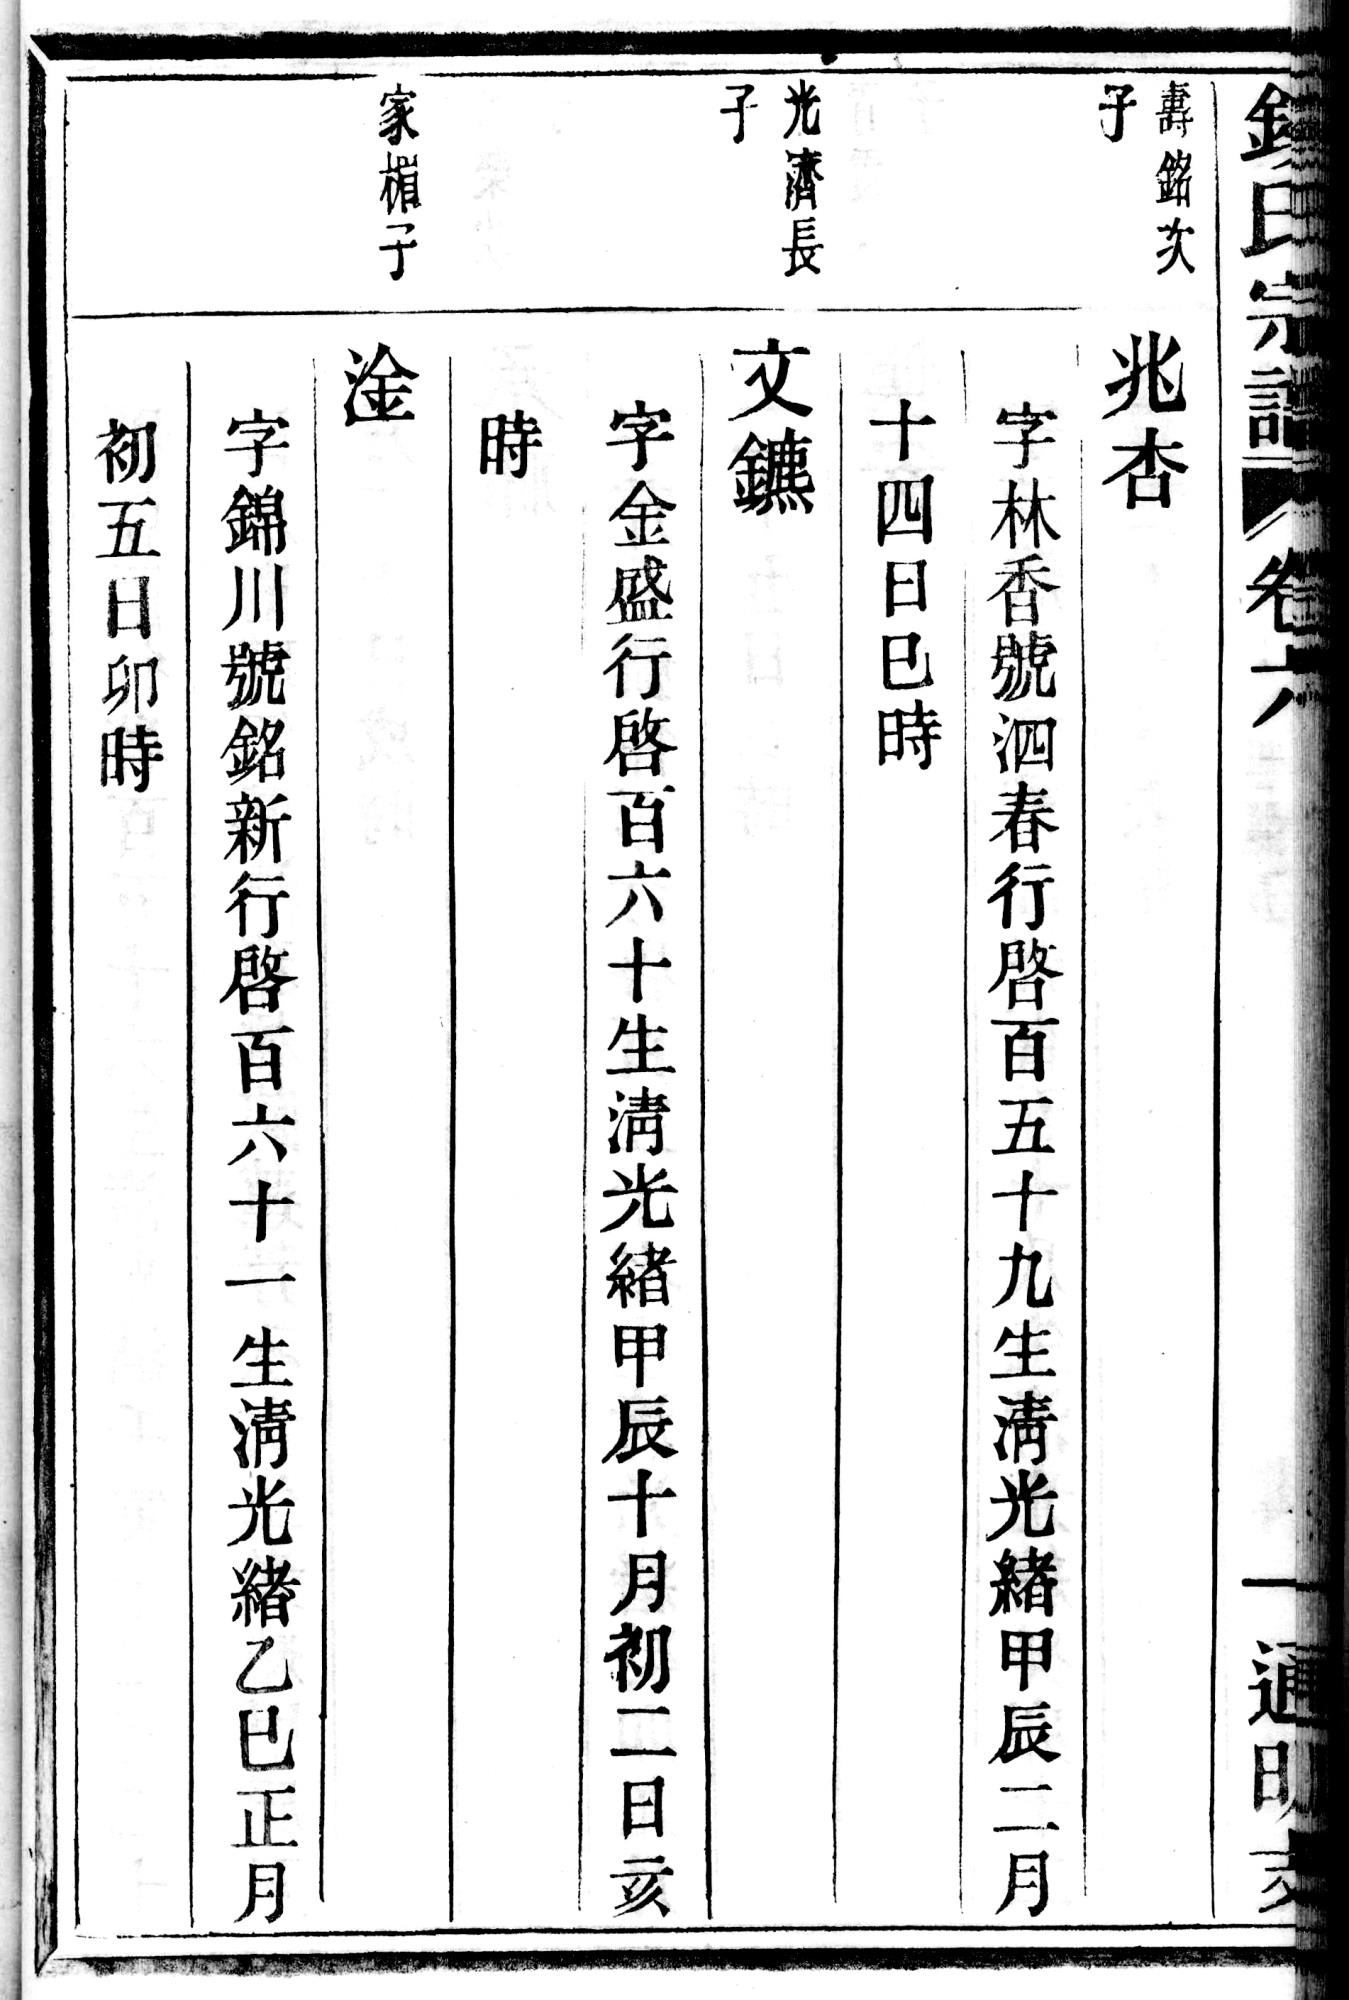 氏宗譜 卷六 一 通明
壽銘次
子
兆杏
字林香號泗春行啓百五十九生淸光緖甲辰二月
十四日巳時
光濟長
子
文鑣
字金盛行啓百六十生淸光緖甲辰十月初二日亥
時
家楣子
淦
字錦川號銘新行啓百六十一生淸光緖乙巳正月
初五日卯時